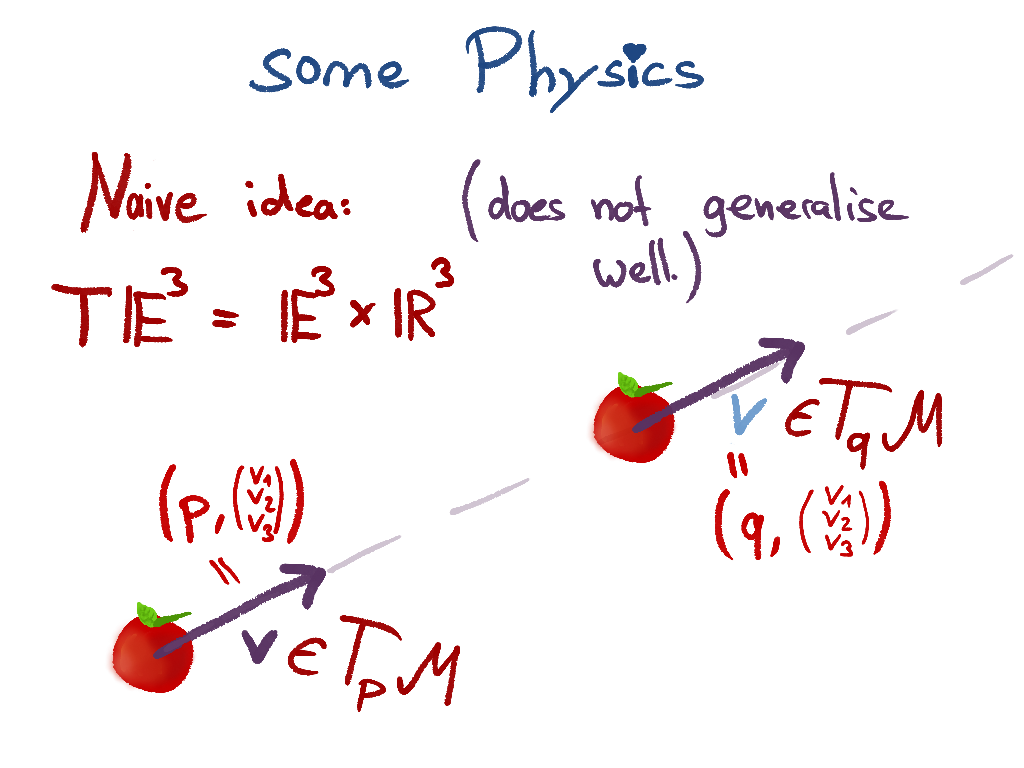 some Physics
Naive idea:
(does not generalise
well.)
T𝔼³ = 𝔼³ × ℝ³
v ∈ T_q M
=
(q, (v₁ v₂ v₃))
(p, (v₁ v₂ v₃))
=
v ∈ T_p M